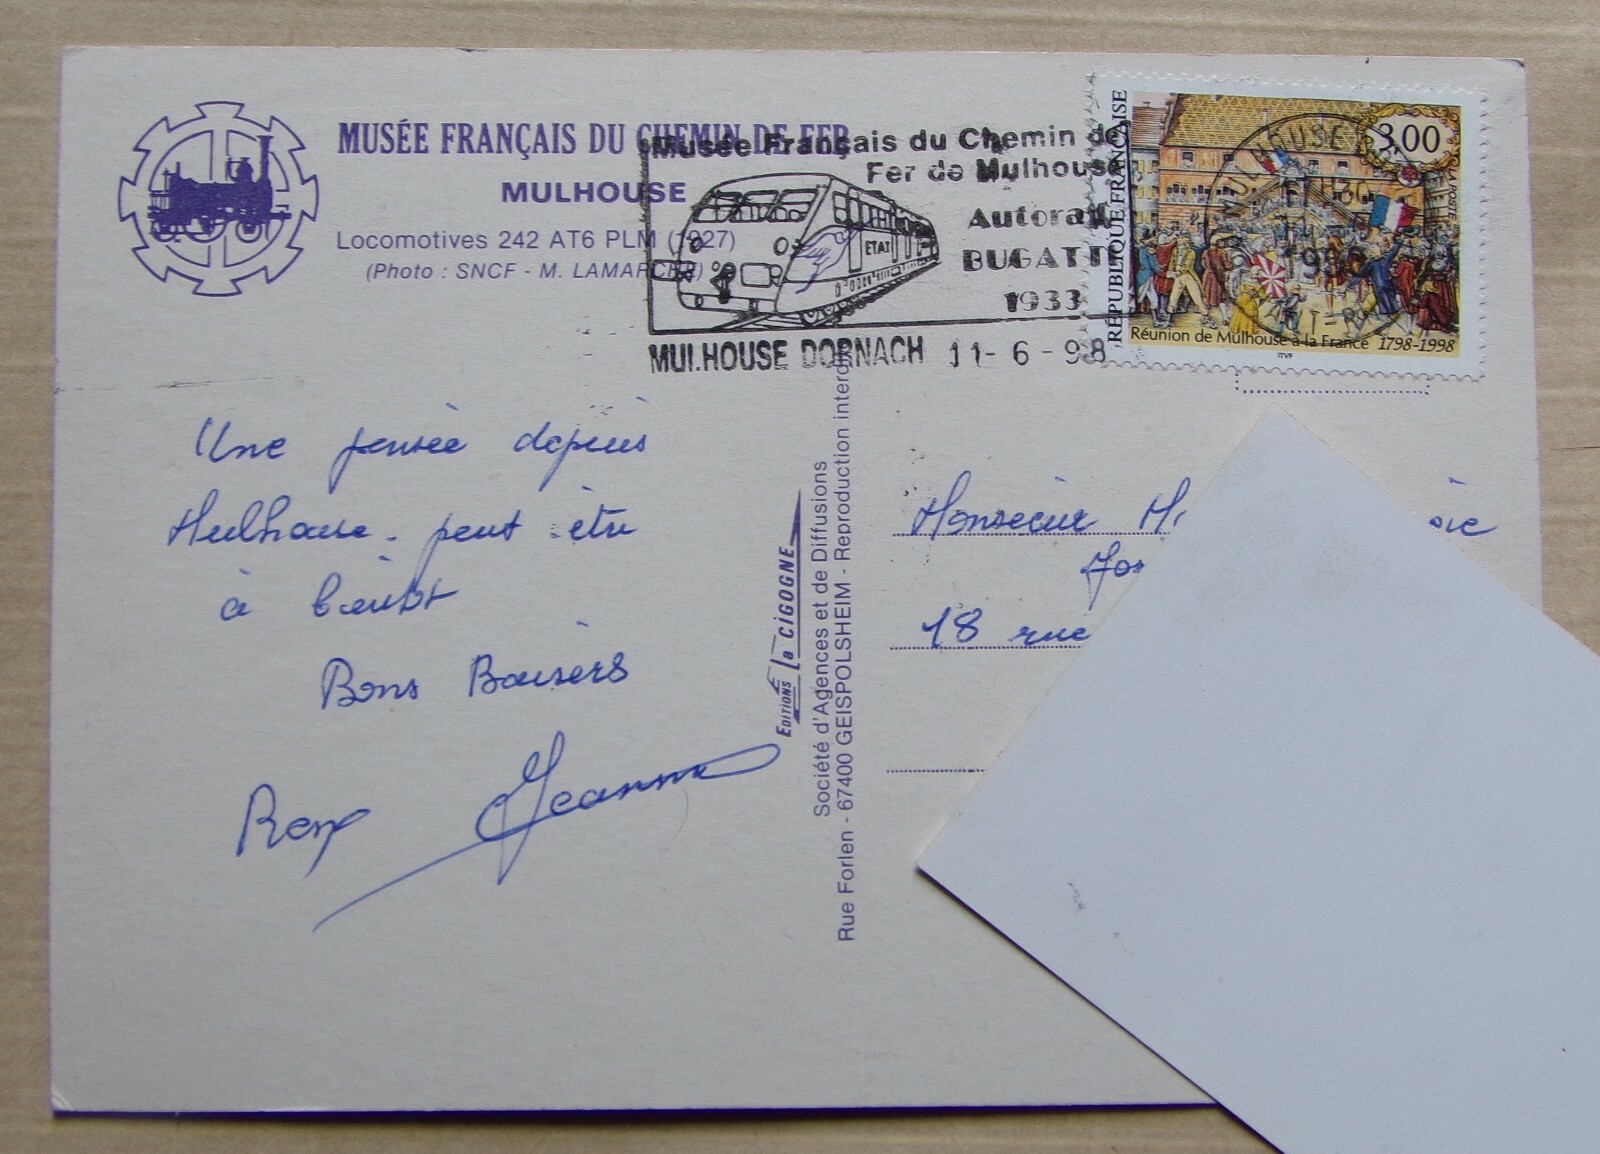 MUSÉE FRANÇAIS DU CHEMIN DE FER
MULHOUSE
Locomotives 242 AT6 PLM (1927)
(Photo : SNCF - M. LAMARCHE)
Musée Français du Chemin de
Fer de Mulhouse
Autorail
BUGATTI
1933
ETAT
MULHOUSE DORNACH 11-6-98
RÉPUBLIQUE FRANÇAISE
3,00
LA POSTE
MULHOUSE
Réunion de Mulhouse à la France 1798-1998
ITVF
Une pensée depuis
Mulhouse. peut être
à bientôt
Bons Baisers
Jeanne
EDITIONS la CIGOGNE
Société d'Agences et de Diffusions
Rue Forlen - 67400 GEISPOLSHEIM - Reproduction interdite
Monsieur
18 rue